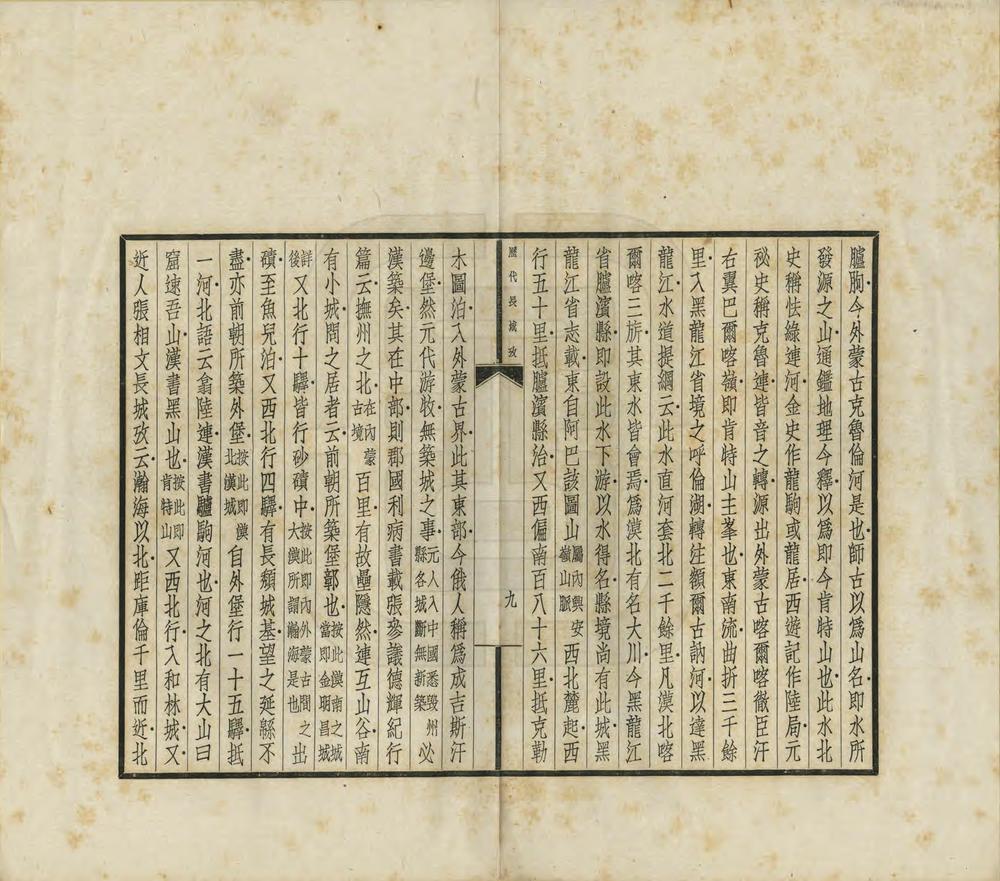 臚朐今外蒙古克魯倫河是也師古以爲山名即水所
發源之山通鑑地理今釋以爲即今肯特山也此水北
史稱怯綠連河金史作龍駒或龍居西遊記作陸局元
祕史稱克魯連皆音之轉源出外蒙古喀爾喀徹臣汗
右翼巴爾喀嶺即肯特山主峯也東南流曲折二千餘
里入黑龍江省境之呼倫湖轉注額爾古訥河以達黑
龍江水道提綱云此水直河套北二千餘里凡漠北喀
爾喀三旂其東水皆會焉爲漠北有名大川今黑龍江
省臚濱縣即設此水下游以水得名縣境尚有此城黑
龍江省志載東自阿巴該圖山屬內興安嶺山脈西北麓起西
行五十里抵臚濱縣治又西偏南百八十六里抵克勒
歷代長城攷
九
木圖泊入外蒙古界此其東部今俄人稱爲成吉斯汗
邊堡然元代游牧無築城之事元人入中國悉毀州縣各城斷無新築必
漢築矣其在中部則郡國利病書載張參議德輝紀行
篇云撫州之北在內蒙古境百里有故壘隱然連亙山谷南
有小城問之居者云前朝所築堡鄣也按此漠南之城當即金明昌城
詳後又北行十驛皆行砂磧中按此即內外蒙古間之大漠所謂瀚海是也出
磧至魚兒泊又西北行四驛有長頹城基望之延緜不
盡亦前朝所築外堡按此即漠北漢城自外堡行一十五驛抵
一河北語云翕陸連漢書驢駒河也河之北有大山曰
窟速吾山漢書黑山也按此即肯特山又西北行入和林城又
近人張相文長城攷云瀚海以北距庫倫千里而近北